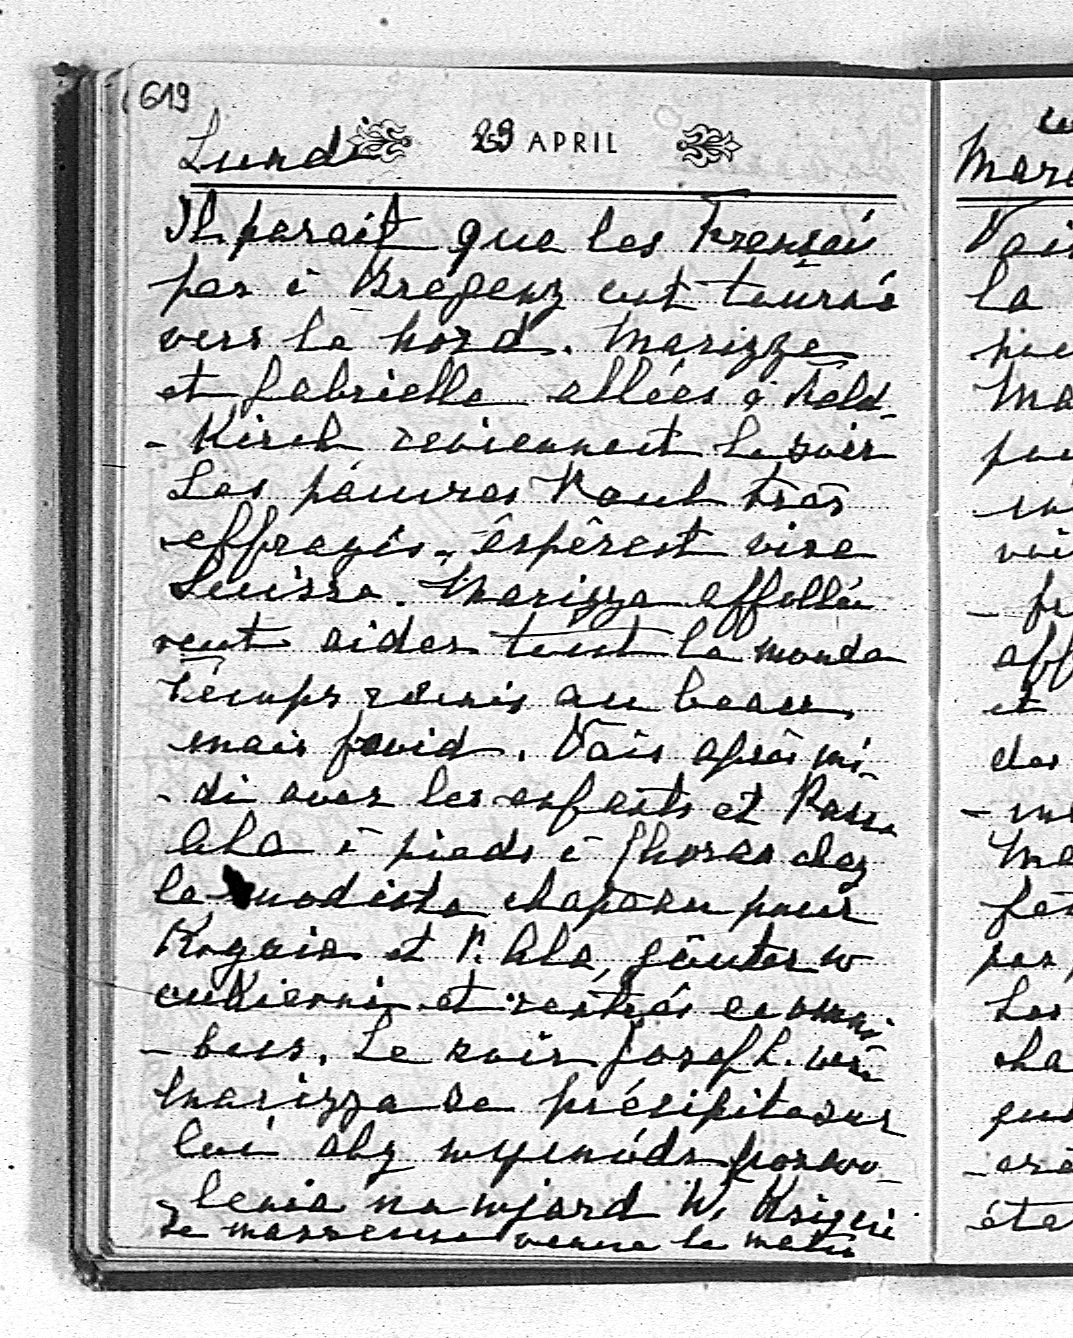 619
Lundi 29 APRIL
Il parait que les Français
par à Bregenz ont tourné
vers le nord. Marizza
et Gabrielle allées à Feld-
- Kirch reviennent le soir
Les pauvres sont très
effrayés, espèrent visa
Suisse. Marizza affollée
veut aider tout le monde
Temps remis au beau,
mais froid. Vais après mi-
- di avec les enfants et
Ala à pieds à chez
la modiste chapeau pour
et P. Ala, goûter w
cukierni et rentrés en omni-
- bus. Le soir Joseph.
Marizza se précipite sur
lui aby pozwo-
- lenia na wjazd W.
La masseuse venue le matin
Mar
Vais
la
Ma
voi
aff
et
des
- me
Ma
Les
cha
éta